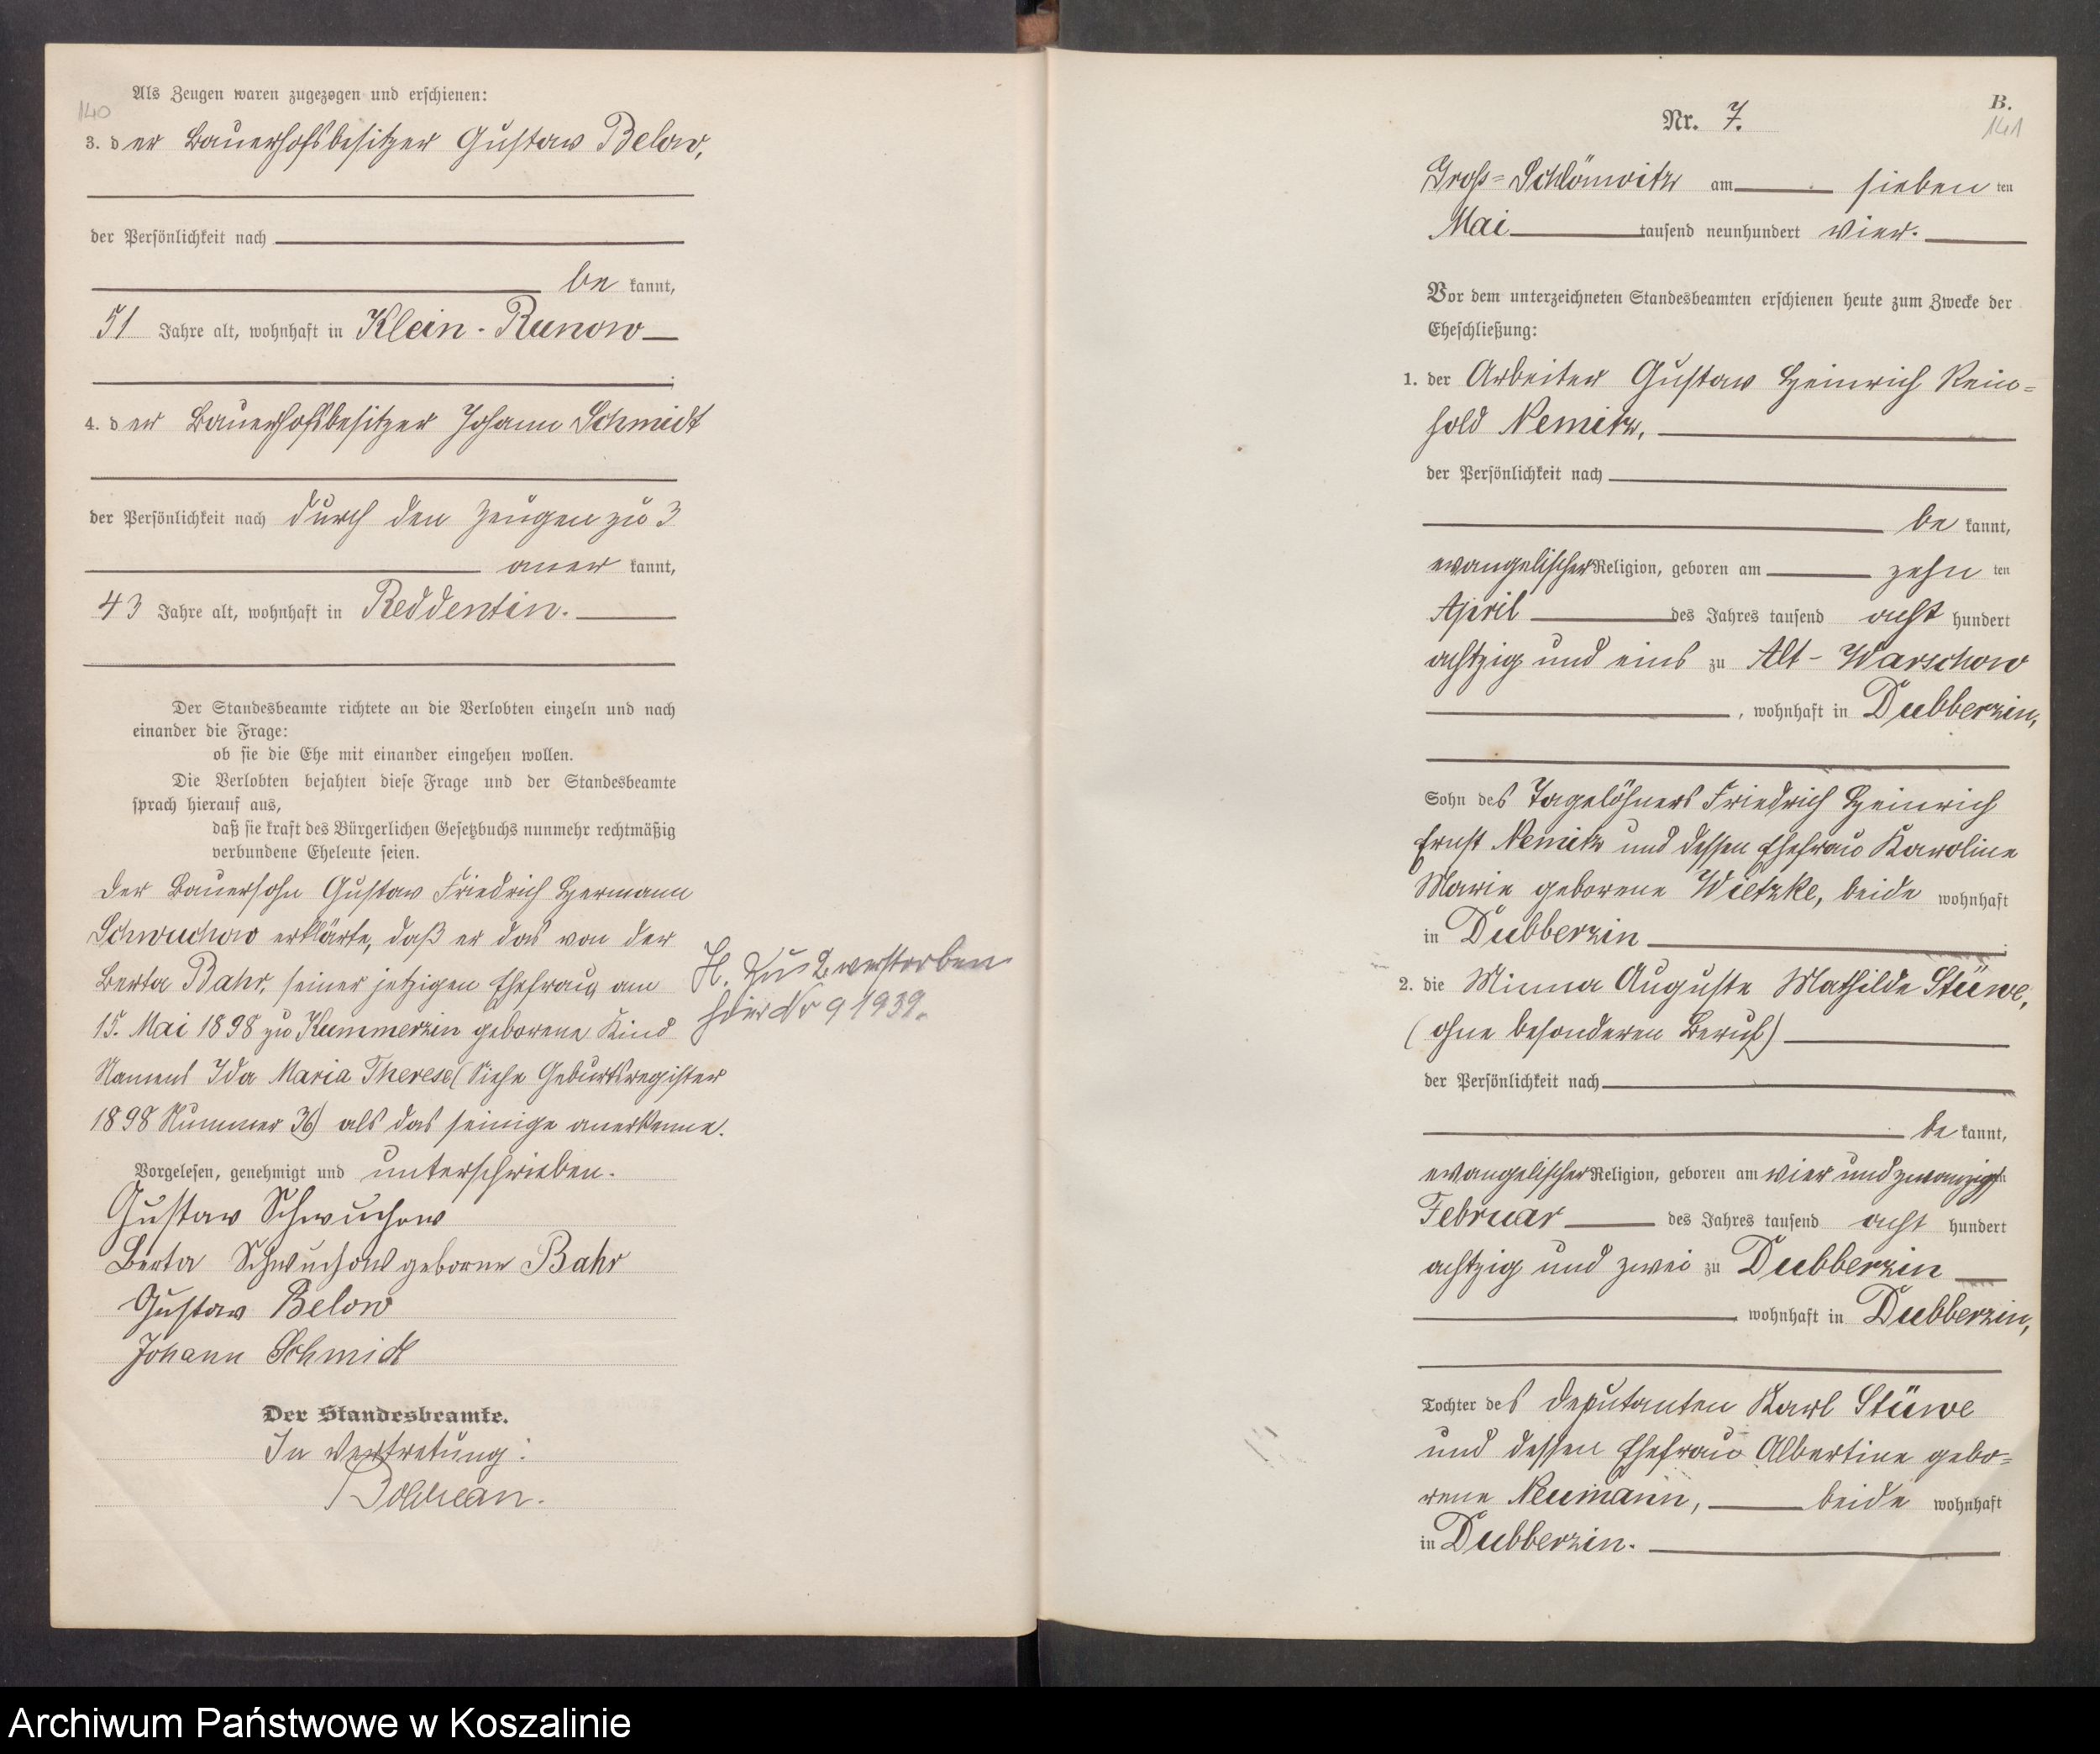 140
Als Zeugen waren zugezogen und erschienen:
3. der Bauerhofsbesitzer Gustav Below,
der Persönlichkeit nach
be kannt,
51 Jahre alt, wohnhaft in Klein-Runow
4. der Bauerhofsbesitzer Johann Schmidt
der Persönlichkeit nach durch den Zeugen zu 3
aner kannt,
43 Jahre alt, wohnhaft in Reddentin.
Der Standesbeamte richtete an die Verlobten einzeln und nach
einander die Frage:
ob sie die Ehe mit einander eingehen wollen.
Die Verlobten bejahten diese Frage und der Standesbeamte
sprach hierauf aus,
daß sie kraft des Bürgerlichen Gesetzbuchs nunmehr rechtmäßig
verbundene Eheleute seien.
Der Bauersohn Gustav Friedrich Hermann
Schwuchow erklärte, daß er das von der
Berta Bahr, seiner jetzigen Ehefrau am
15. Mai 1898 zu Kummerzin geborene Kind
Namens Ida Maria Therese (Siehe Geburtsregister
1898 Nummer 36) als das seinige anerkenne.
H. Zu 2 verstorben
hier No 9 1939.
Vorgelesen, genehmigt und unterschrieben.
Gustav Schwuchow
Berta Schwuchow geborne Bahr
Gustav Below
Johann Schmidt
Der Standesbeamte.
In Vertretung:
B.
141
Nr. 7.
Groß-Schlönwitz am sieben ten
Mai tausend neunhundert vier.
Vor dem unterzeichneten Standesbeamten erschienen heute zum Zwecke der
Eheschließung:
1. der Arbeiter Gustav Heinrich Rein=
hold Nemitz,
der Persönlichkeit nach
be kannt,
evangelischer Religion, geboren am zehn ten
April des Jahres tausend acht hundert
achtzig und eins zu Alt-Warschow
, wohnhaft in Dubberzin,
Sohn des Tagelöhners Friedrich Heinrich
Ernst Nemitz und dessen Ehefrau Karoline
Marie geborene Wietzke, beide wohnhaft
in Dubberzin ;
2. die Minna Auguste Mathilde Stüwe,
(ohne besonderen Beruf)
der Persönlichkeit nach
be kannt,
evangelischer Religion, geboren am vier und zwanzigsten
Februar des Jahres tausend acht hundert
achtzig und zwei zu Dubberzin
, wohnhaft in Dubberzin,
Tochter des Deputanten Karl Stüwe
und dessen Ehefrau Albertine gebo=
rene Neumann, beide wohnhaft
in Dubberzin.
Archiwum Państwowe w Koszalinie